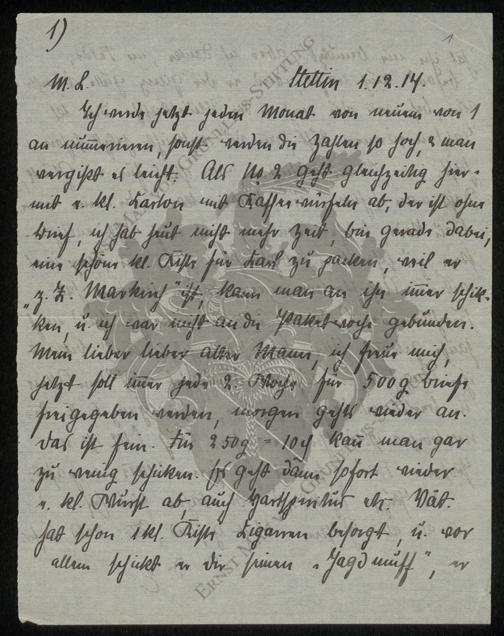 1)
1
M. L. Stettin 1.12.14.
Ich werde jetzt jeden Monat von neuem von 1
an nummerieren, sonst werden die Zahlen so hoch, & man
vergißt es leicht. Als No 2 geht gleichzeitig hier-
mit e. kl. Karton mit Kaffeewürfeln ab, der ist ohne
Brief, ich hab heut nicht mehr Zeit, bin gerade dabei,
eine schöne kl. Kiste für Karl zu packen, weil er
"z. Z. Markirch" ist, kann man an ihn immer schik-
ken, u. ich war nicht an die Paketwoche gebunden.
Mein lieber lieber alter Mann, ich freue mich,
jetzt soll immer jede 2. Woche für 500g Briefe
freigegeben werden, morgen gehts wieder an.
Das ist fein. Für 250g = 10 kann man gar
zu wenig schicken. Es geht dann sofort wieder
e. kl. Wurst ab auch Hartspiritus etc. Vat.
hat schon 1 kl. Kiste Zigarren besorgt, u. vor
allem schickt er dir seinen "Jagdmuff", er
ERNST MAGNUS-GRUNDLERS-STIFTUNG